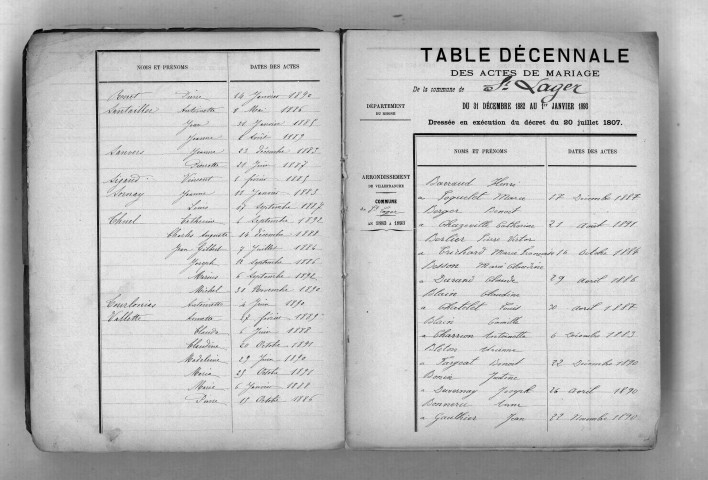 NOMS ET PRÉNOMS DATES DES ACTES
Pierre 14 Janvier 1890
Santailler Antoinette 8 Mai 1886
Jean 20 Janvier 1885
Jeanne 1 Août 1889
Sauvers Jeanne 22 décembre 1883
Pierrette 20 Juin 1887
Sigaud Vincent 1 février 1885
Sornay Jeanne 12 Janvier 1883
Louis 17 Septembre 1887
Thuel Catherine 6 Septembre 1892
Charles Auguste 14 décembre 1888
Jean Gilbert 7 Juillet 1886
Joseph 11 Septembre 1886
Marius 6 Septembre 1892
Michel 21 Novembre 1890
Antoinette 4 Juin 1890
Vallette Annette 17 février 1885
Claude 6 Juin 1888
Claudine 20 Octobre 1891
Madeleine 29 Juin 1890
Maria 25 Octobre 1890
Marie 6 Janvier 1888
Pierre 11 Octobre 1886
TABLE DÉCENNALE
DES ACTES DE MARIAGE
De la commune de St Lager
DU 31 DÉCEMBRE 1882 AU 1er JANVIER 1893
Dressée en exécution du décret du 20 juillet 1807.
DÉPARTEMENT
DU RHONE
ARRONDISSEMENT
DE VILLEFRANCHE
COMMUNE
de St Lager
DE 1883 A 1893
NOMS ET PRÉNOMS DATES DES ACTES
Barraud Henri
Marie 17 Décembre 1887
Berger Benoit
Catherine 21 avril 1891
Berlier Pierre Victor
Trichard Marie Françoise 16 Octobre 1886
Besson Marie Claudine
Durand Claude 29 avril 1886
Blain Claudine
Chatelet Louis 30 avril 1887
Blain Camille
Charron Antoinette 6 Décembre 1883
Benoit 22 Décembre 1890
Justine
Duvernay Joseph 26 avril 1890
Gauthier Jean 22 Novembre 1890